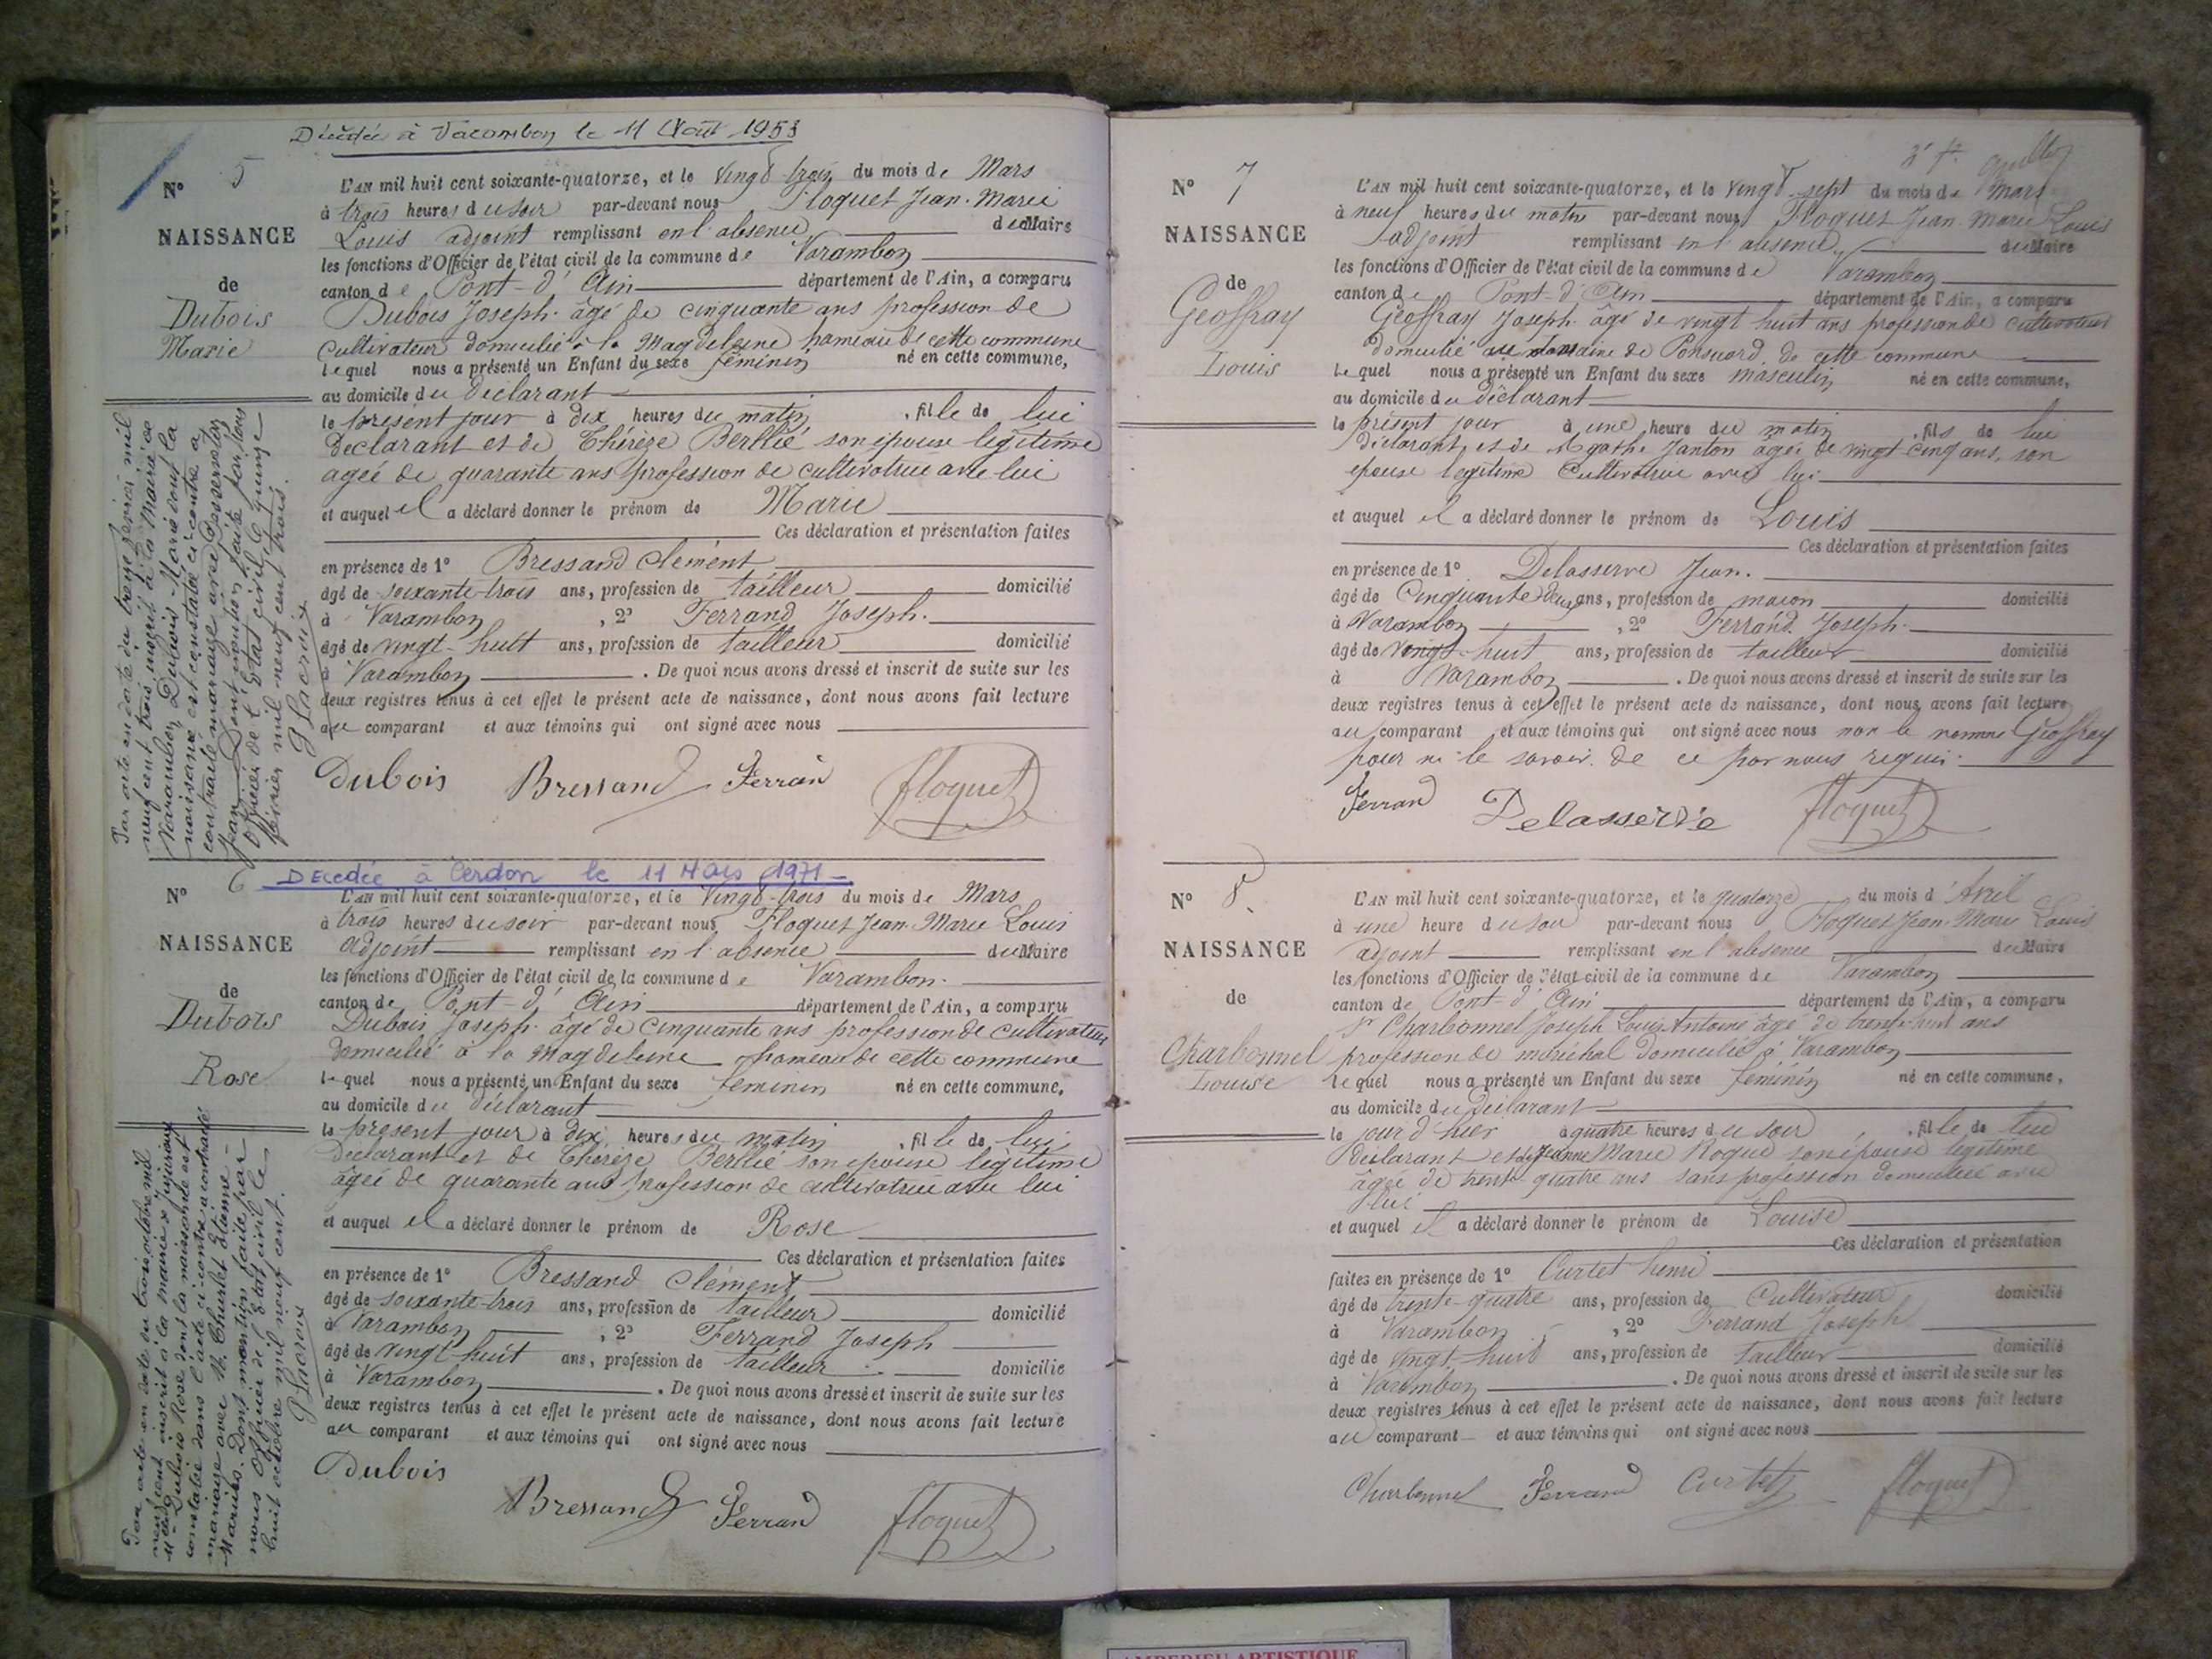 Décédée à Varambon le 11 Août 1953
N° 5
NAISSANCE
de
Dubois
Marie
L'AN mil huit cent soixante-quatorze, et le Vingt trois du mois de Mars
à trois heures du soir par-devant nous Floquet Jean-Marie
Louis adjoint remplissant en l'absence du Maire
les fonctions d'Officier de l'état civil de la commune de Varambon
canton de Pont-d'Ain département de l'Ain, a comparu
Dubois Joseph âgé de cinquante ans profession de
Cultivateur domicilié à la Magdeleine hameau de cette commune
lequel nous a présenté un Enfant du sexe féminin né en cette commune,
au domicile du déclarant
le présent jour à dix heures du matin, fille de lui
Déclarant et de Thérèze Berllié son épouse légitime
agée de quarante ans profession de cultivatrice avec lui
et auquel il a déclaré donner le prénom de Marie
Ces déclaration et présentation faites
en présence de 1° Bressand Clément
âgé de soixante-trois ans, profession de tailleur domicilié
à Varambon, 2° Ferrand Joseph
âgé de vingt-huit ans, profession de tailleur domicilié
à Varambon. De quoi nous avons dressé et inscrit de suite sur les
deux registres tenus à cet effet le présent acte de naissance, dont nous avons fait lecture
au comparant et aux témoins qui ont signé avec nous
Dubois Bressand Ferran Floquet
Par acte en date du treize février mil
neuf cent trois, inscrit à la Mairie de
Varambon, Dubois Marie dont la
naissance est constatée ci-contre a
contracté mariage avec
Jean. Dont mention faite par nous
Officier de l'état civil le quinze
février mil neuf cent trois.
P Lacroix
Décédée à Cerdon le 11 Mars 1971
N° 6
NAISSANCE
de
Dubois
Rose
L'AN mil huit cent soixante-quatorze, et le Vingt-trois du mois de Mars
à trois heures du soir par-devant nous Floquet Jean-Marie Louis
adjoint remplissant en l'absence du Maire
les fonctions d'Officier de l'état civil de la commune de Varambon
canton de Pont-d'Ain département de l'Ain, a comparu
Dubois Joseph âgé de Cinquante ans profession de cultivateur
domicilié à la Magdeleine hameau de cette commune
lequel nous a présenté un Enfant du sexe féminin né en cette commune,
au domicile du déclarant
le présent jour à dix heures du matin, fille de lui
Déclarant et de Thérèze Berllié son épouse légitime
âgée de quarante ans profession de cultivatrice avec lui
et auquel il a déclaré donner le prénom de Rose
Ces déclaration et présentation faites
en présence de 1° Bressand Clément
âgé de soixante-trois ans, profession de tailleur domicilié
à Varambon, 2° Ferrand Joseph
âgé de vingt huit ans, profession de tailleur domicilié
à Varambon. De quoi nous avons dressé et inscrit de suite sur les
deux registres tenus à cet effet le présent acte de naissance, dont nous avons fait lecture
au comparant et aux témoins qui ont signé avec nous
Dubois Bressand Ferran Floquet
Par acte en date du trois octobre mil
neuf cent inscrit à la mairie de Jujurieux
Dubois Rose dont la naissance est
constatée dans l'acte ci-contre a contracté
mariage avec M. Churlet Etienne
Marius. Dont mention faite par
nous Officier de l'état civil le
huit octobre mil neuf cent.
P Lacroix
N° 7
NAISSANCE
de
Geoffray
Louis
L'AN mil huit cent soixante-quatorze, et le Vingt-sept du mois de Mars
à neuf heures du matin par-devant nous Floquet Jean-Marie Louis
adjoint remplissant en l'absence du Maire
les fonctions d'Officier de l'état civil de la commune de Varambon
canton de Pont-d'Ain département de l'Ain, a comparu
Geoffray Joseph âgé de vingt huit ans profession de cultivateur
domicilié au domaine de de cette commune
lequel nous a présenté un Enfant du sexe masculin né en cette commune,
au domicile du déclarant
le présent jour à une heure du matin, fils de lui
déclarant, et de Agathe Janton âgée de vingt cinq ans, son
épouse légitime Cultivatrice avec lui
et auquel il a déclaré donner le prénom de Louis
Ces déclaration et présentation faites
en présence de 1° Delasserve Jean.
âgé de Cinquante deux ans, profession de maçon domicilié
à Varambon, 2° Ferrand Joseph.
âgé de vingt-huit ans, profession de tailleur domicilié
à Varambon. De quoi nous avons dressé et inscrit de suite sur les
deux registres tenus à cet effet le présent acte de naissance, dont nous avons fait lecture
au comparant et aux témoins qui ont signé avec nous non le nommé Geoffray
pour ne le savoir de ce par nous requis.
Ferran Delasserve Floquet
N° 8
NAISSANCE
de
Charbonnel
Louise
L'AN mil huit cent soixante-quatorze, et le quatorze du mois d'Avril
à une heure du soir par-devant nous Floquet Jean-Marie Louis
adjoint remplissant en l'absence du Maire
les fonctions d'Officier de l'état civil de la commune de Varambon
canton de Pont-d'Ain département de l'Ain, a comparu
Sr Charbonnel Joseph Louis Antoine âgé de trente huit ans
profession de maréchal domicilié à Varambon
lequel nous a présenté un Enfant du sexe féminin né en cette commune,
au domicile du déclarant
le jour d'hier à quatre heures du soir, fille de lui
déclarant et de Jeanne Marie Roque son épouse légitime
âgée de trente quatre ans sans profession domiciliée avec
lui
et auquel il a déclaré donner le prénom de Louise
Ces déclaration et présentation
faites en présence de 1° Curtet henri
âgé de trente-quatre ans, profession de Cultivateur domicilié
à Varambon, 2° Ferrand Joseph
âgé de vingt-huit ans, profession de tailleur domicilié
à Varambon. De quoi nous avons dressé et inscrit de suite sur les
deux registres tenus à cet effet le présent acte de naissance, dont nous avons fait lecture
au comparant et aux témoins qui ont signé avec nous
Charbonnel Ferrand Curtet Floquet
AMBERIEU ARTISTIQUE